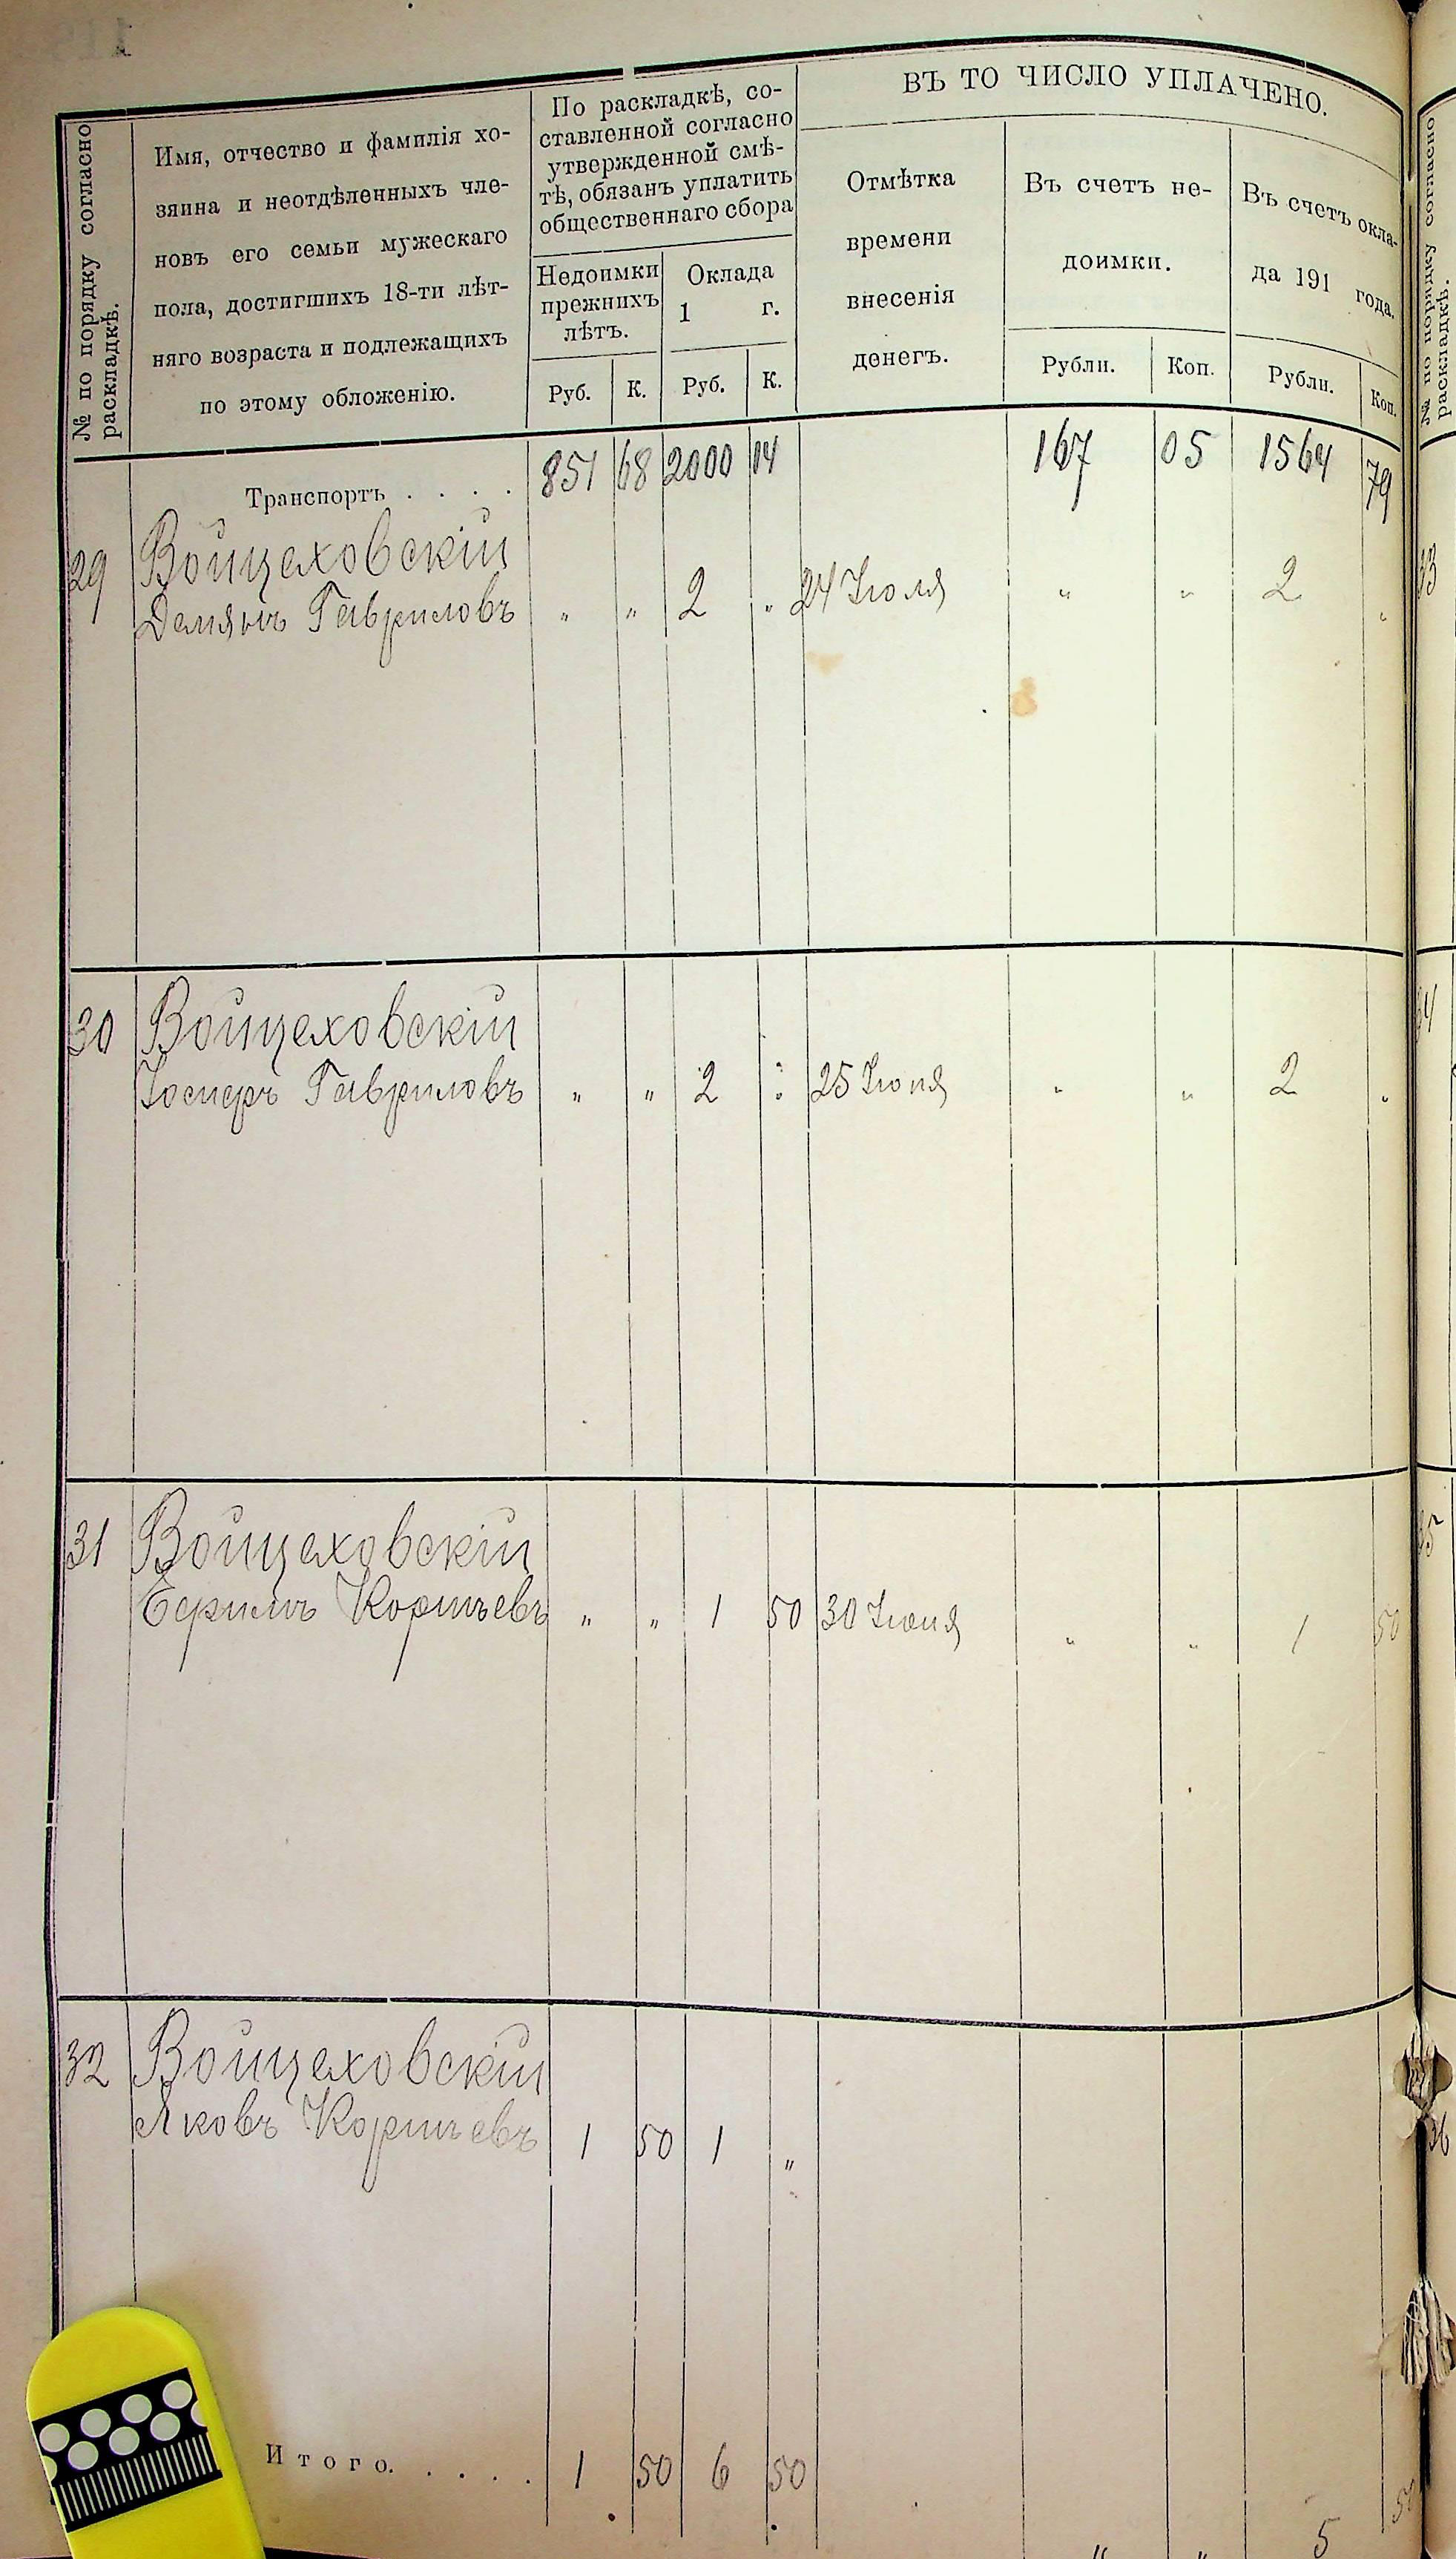 № по порядку согласно
раскладкѣ.
Имя, отчество и фамилія хо-
зяина и неотдѣленныхъ чле-
новъ его семьи мужескаго
пола, достигшихъ 18-ти лѣт-
няго возраста и подлежащихъ
по этому обложенію.
По раскладкѣ, со-
ставленной согласно
утвержденной смѣ-
тѣ, обязанъ уплатить
общественнаго сбора
Недоимки
прежнихъ
лѣтъ.
Оклада
1 г.
Руб. К. Руб. К.
ВЪ ТО ЧИСЛО УПЛАЧЕНО.
Отмѣтка
времени
внесенія
денегъ.
Въ счетъ не-
доимки.
Рубли. Коп.
Въ счетъ окла-
да 191 года.
Рубли. Коп.
Транспортъ . . . . 851 68 2000 14 167 05 1564 79
29 Войцеховскій
Демянъ Гавриловъ „ „ 2 „ 24 Іюля „ „ 2 „
30 Войцеховскій
Іосифъ Гавриловъ „ „ 2 „ 25 Іюня „ „ 2 „
31 Войцеховскій
Ефимъ Корнѣевъ „ „ 1 50 30 Іюня „ „ 1 50
32 Войцеховскій
Яковъ Корнѣевъ 1 50 1 „
Итого. . . . . 1 50 6 50 „ „ 5 50
№ по порядку согласно
раскладкѣ.
33
34
35
36